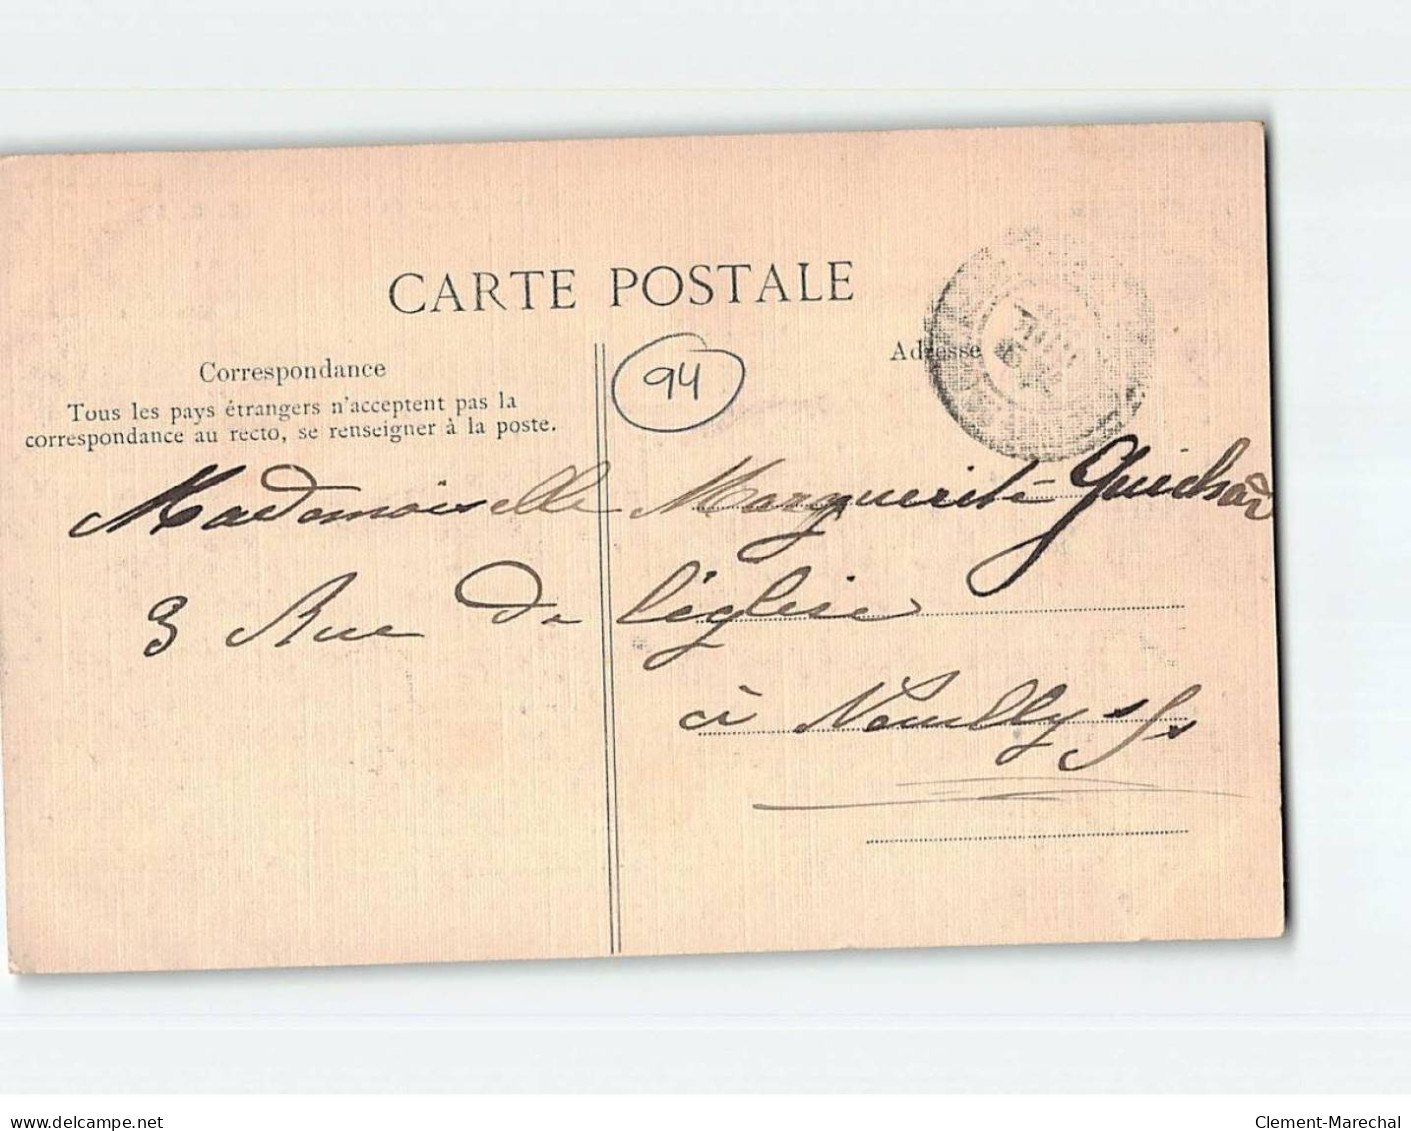 CARTE POSTALE
Correspondance
Adresse
94
Tous les pays étrangers n'acceptent pas la
correspondance au recto, se renseigner à la poste.
Mademoiselle Marguerite Guichard
3 Rue de l'église
à Neuilly s/s
delcampe.net
Clement-Marechal